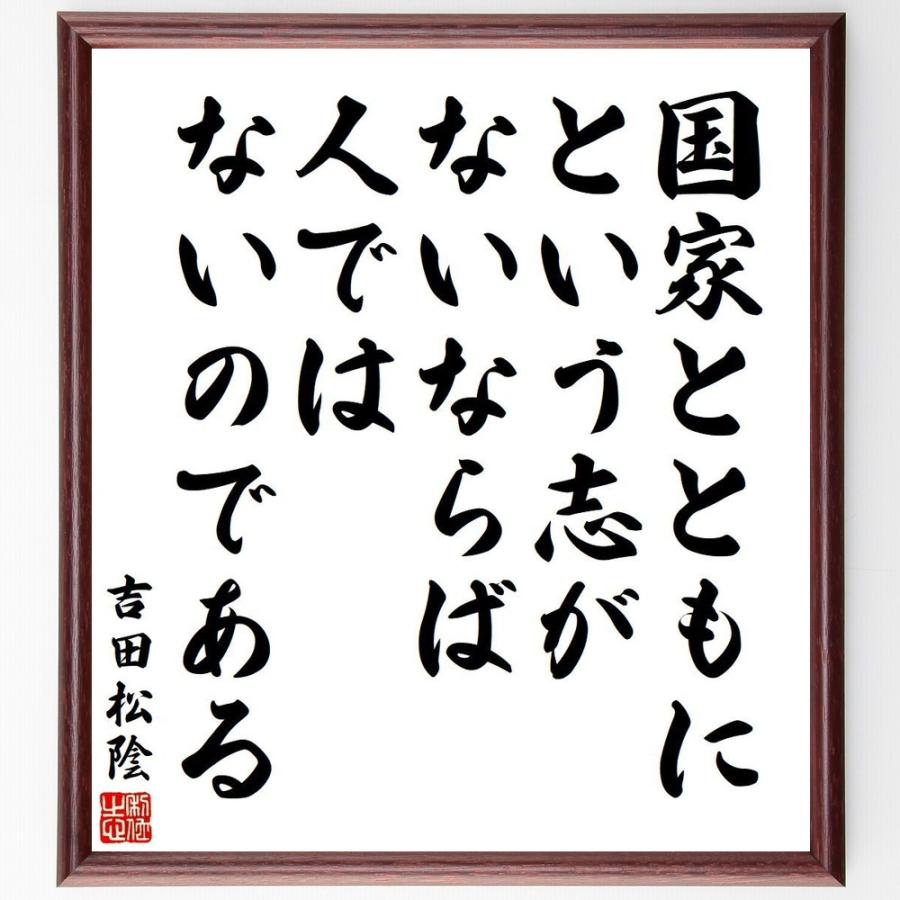 国家とともに
という志が
ないならば
人では
ないのである
吉田松陰